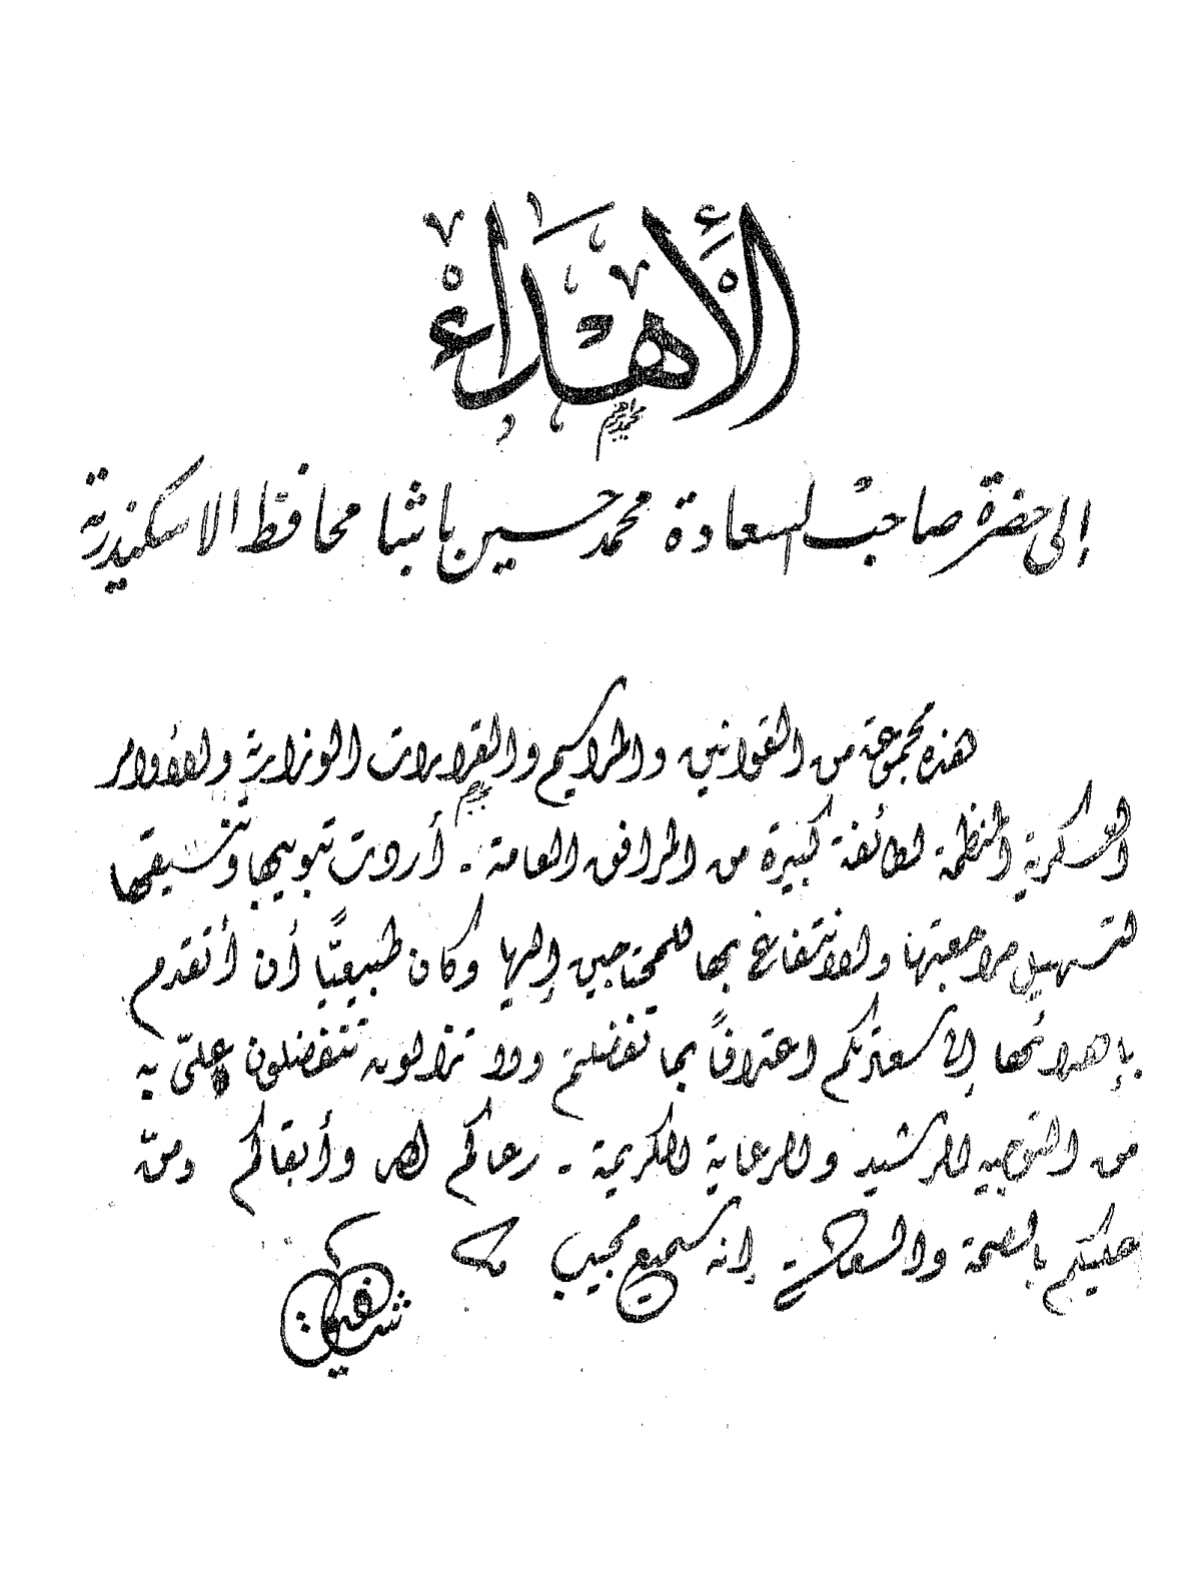 الأهداء
محمد إبراهيم
إلى حضرة صاحب السعادة محمد حسين باشا محافظ الاسكندرية
هذه مجموعة من القوانين والمراسيم والقرارات الوزارية والأوامر
العسكرية المنظمة لطائفة كبيرة من المرافق العامة - أردت تبويبها وتنسيقها
لتسهيل مراجعتها والانتفاع بها للمحتاجين إليها وكان طبيعيًّا أن أتقدم
بإهدائها إلى سعادتكم اعترافاً بما تفضلتم ولا تزالون تتفضلون علىّ به
من التوجيه الرشيد والرعاية الكريمة - رعاكم الله وأبقاكم ومنّ
عليكم بالصحة والسعادة إنه سميع مجيب
شاهين